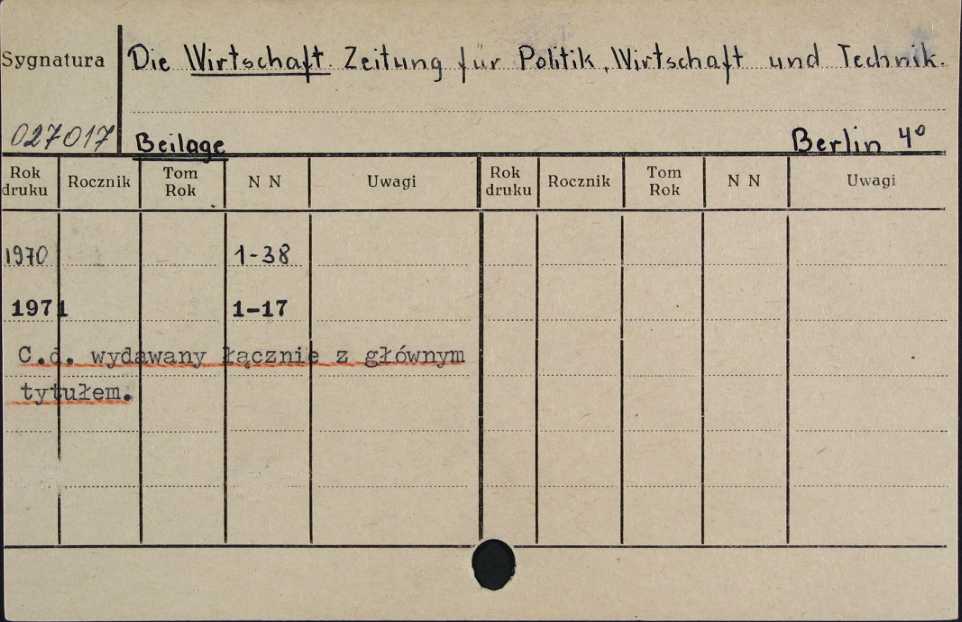 Sygnatura
Die Wirtschaft. Zeitung für Politik, Wirtschaft und Technik.
027017 Beilage Berlin 4°
Rok druku Rocznik Tom Rok N N Uwagi Rok druku Rocznik Tom Rok N N Uwagi
1970 1-38
1971 1-17
C.d. wydawany łącznie z głównym
tytułem.